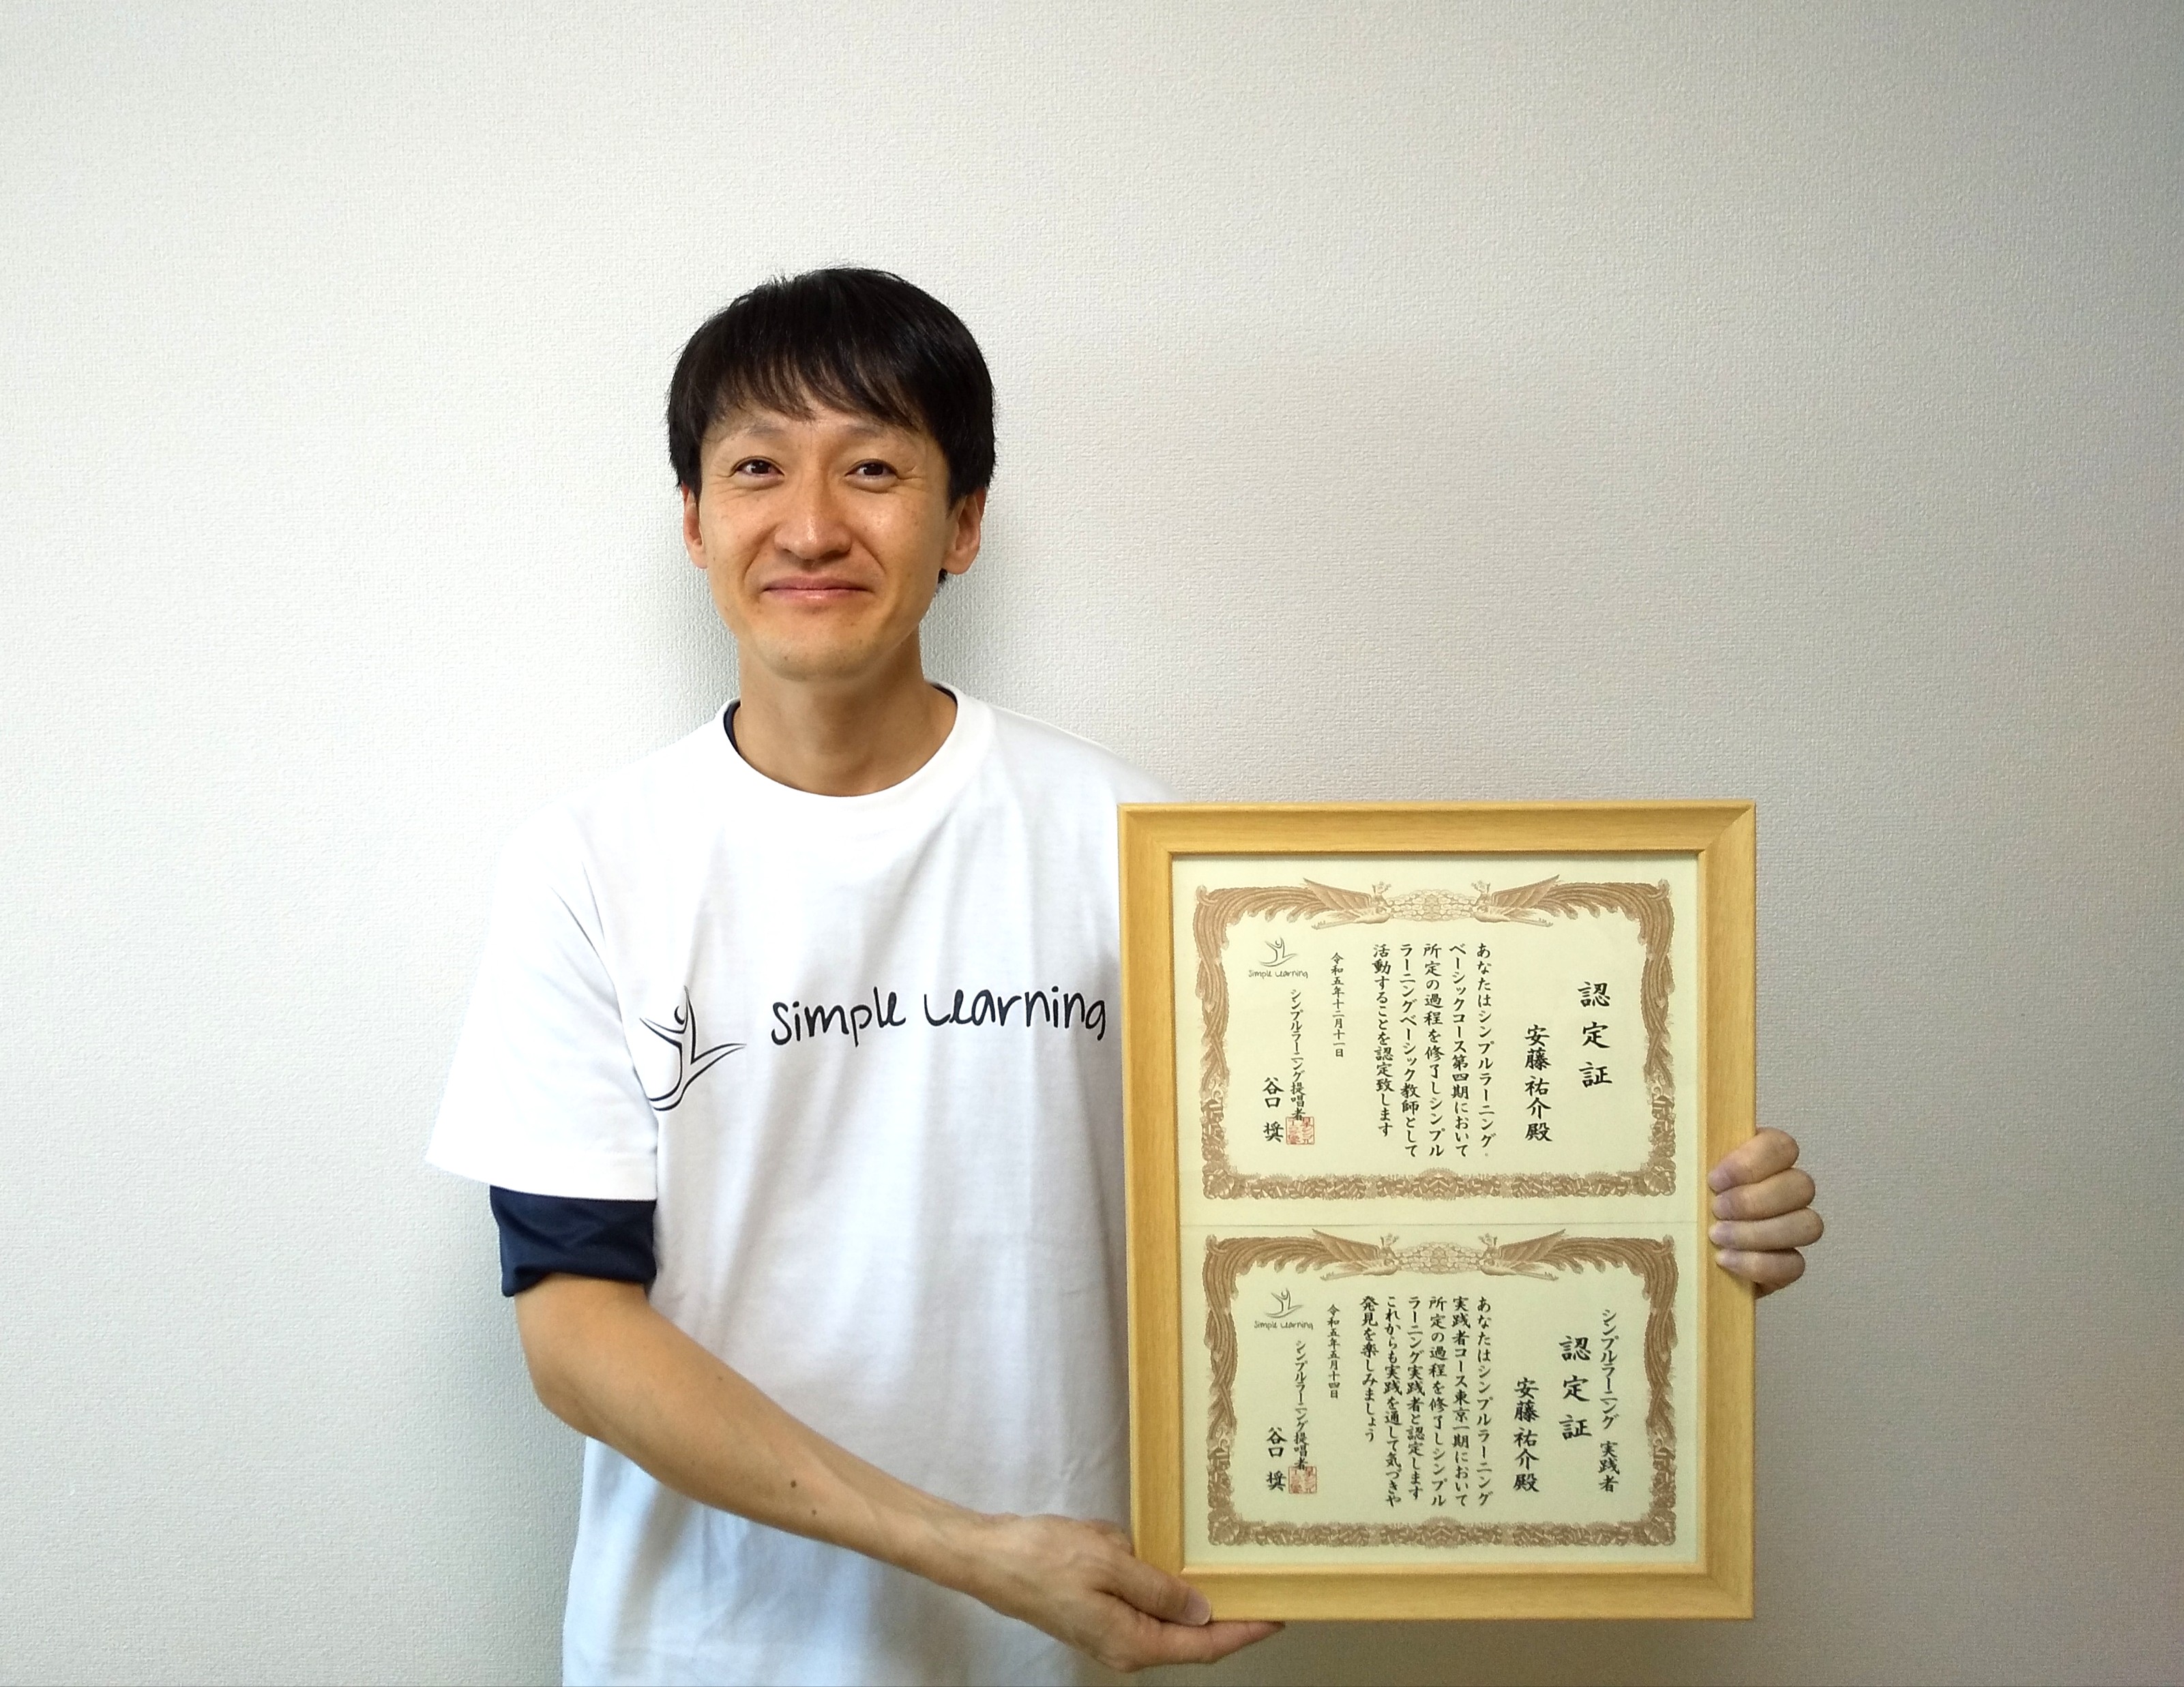 Simple Learning
認定証
安藤祐介殿
あなたはシンプルラーニング
ベーシックコース第四期において
所定の過程を修了しシンプル
ラーニングベーシック教師として
活動することを認定致します
令和五年十二月十一日
シンプルラーニング提唱者
谷口 奨
Simple Learning
シンプルラーニング 実践者
認定証
安藤祐介殿
あなたはシンプルラーニング
実践者コース東京一期において
所定の過程を修了しシンプル
ラーニング実践者と認定します
これからも実践を通して気づきや
発見を楽しみましょう
令和五年五月十四日
シンプルラーニング提唱者
谷口 奨
Simple Learning